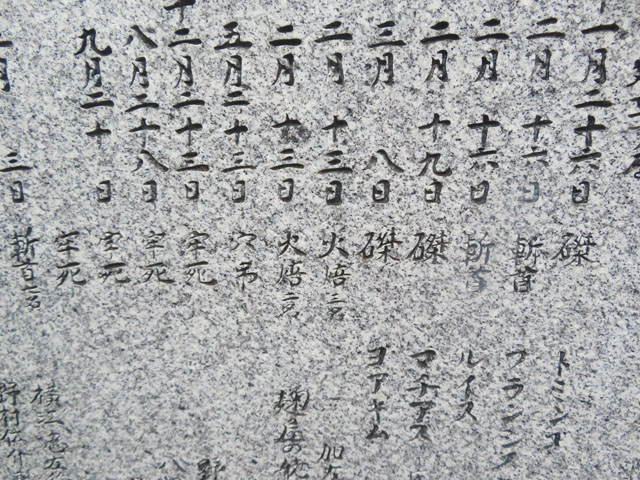 一月二十六日 磔 トミンゴ
二月 十六日 斬首 フランシス
二月 十六日 斬首 ルイス
二月 十九日 磔 マチアス
三月 八日 磔 ヨアキム
二月 十三日 火焙二名
二月 十三日 火焙二名
五月二十三日 穴吊
十二月二十三日 牢死
八月二十八日 牢死
九月二十 日 牢死
牢死
三日 斬首二名